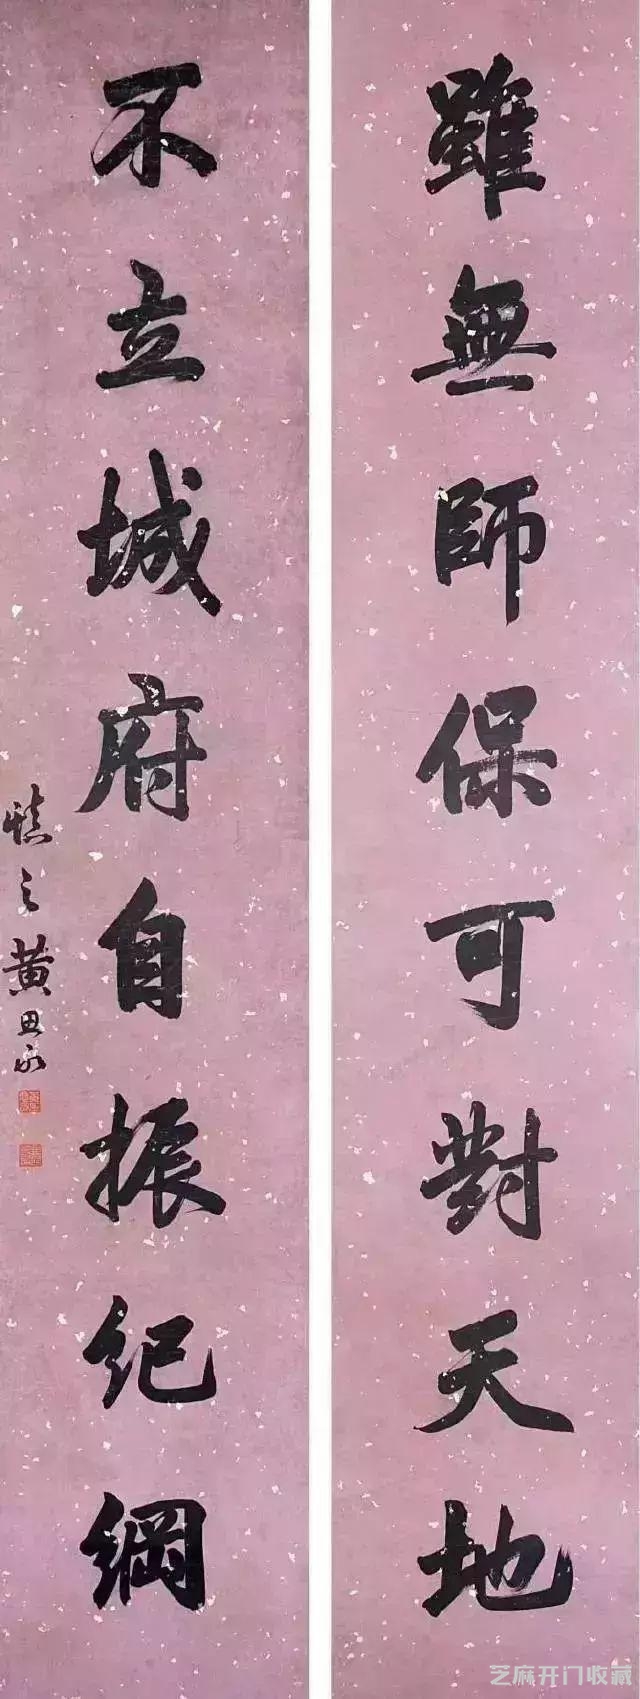 雖無師保可對天地
不立城府自振紀綱
慎之黃思永
芝麻开门收藏